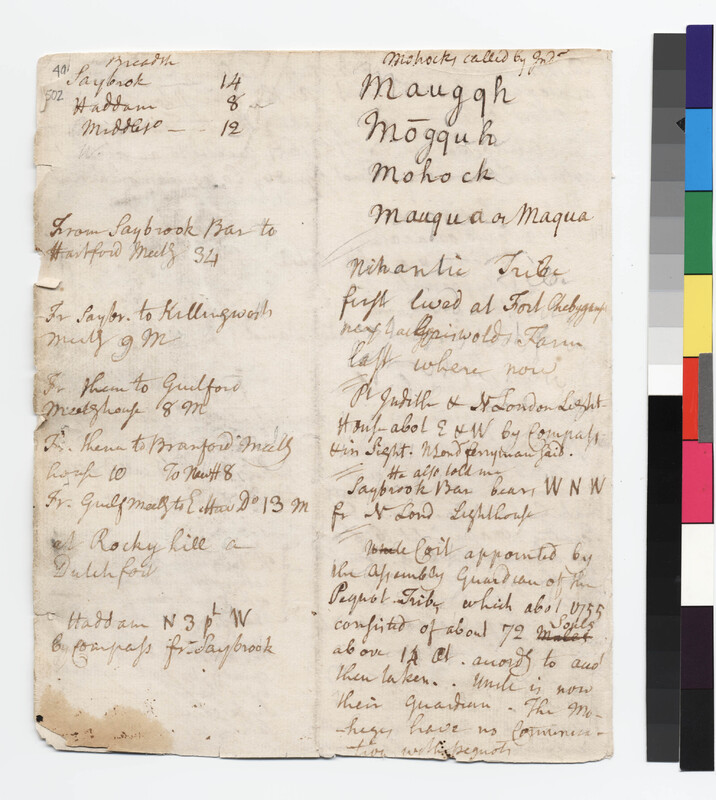 401
502
Breadth
Saybrok 14
Haddam 8
Middleto — 12
From Saybrook Bar to
Hartford Meetg 34
Fr Saybr. to Killingworth
Meetg 9 M
Fr them to Guilford
Meetghouse 8 M
Fr. thence to Branford Meetg
house 10 To NewH 8
Fr. Guilf Meetg to E. Hav Do 13 M
at Rocky hill a
Dutchfort
Haddam N 3 pt W
by Compass fr. Saybrook
Mohocks called by Inds
Mauggh
Mōgquh
Mohock
Mauqua or Maqua
Nihantic Tribe
first lived at Fort
near Griswolds Farm
last where now
Pt Judith & N London Light-
House abot E & W by Compass
& in Sight. N Lond ferryman said.
He also told me
Saybrook Bar bears W N W
fr N Lond Lighthouse
Uncle Coit appointed by
the Assembly Guardian of the
Pequot Tribe which abot 1755
consisted of about 72 Males Souls
above 14 Æt. accordg to acct
then taken. Uncle is now
their Guardian - The Mo-
hegs have no Communica-
tion with pequots